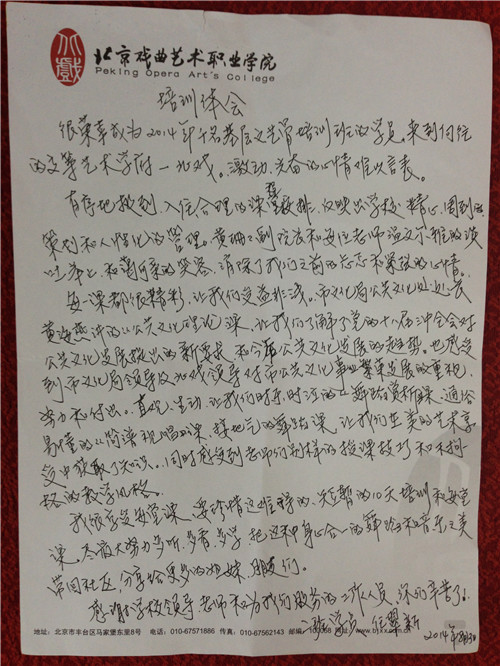 北戏
北京戏曲艺术职业学院
Peking Opera Art's College
培训体会
很荣幸成为2014年千名基层文艺骨干培训班的学员。来到向往
的高等艺术学府一北戏。激动、兴奋的心情难以言表。
有序地报到、入住合理的课程安排、反映出学校精心、周到的
策划和人性化的管理。黄珊珊副院长和安位老师温文尔雅的谈
吐举止和蔼可亲的笑容,消除了我们之前的忐忑不安的心情。
每一课都很精彩,让我们受益非浅。市文化局公共文化处处长
黄海燕讲的《公共文化理论》课,让我们了解了党的十八届三中全会对
公共文化发展提出的新要求和今后公共文化发展的趋势。也感受
到市文化局领导及北戏领导对市公共文化事业发展的重视、
努力和付出。直观、生动、让我们时时泣的《舞蹈赏析》课、通俗
易懂的《简谱视唱》课、接地气的舞蹈课,让我们在美的艺术享
受中获取了知识。同时感受到老师们别样的授课技巧和不拘一
格的教学风格。
我很享受每堂课,要珍惜这难得的、短暂的10天培训和每堂
课,尽最大努力多听、多看、多学,把这种身心合一的舞蹈和音乐之美
带回社区,分享给更多的姐妹、朋友们。
感谢学校领导老师和为我们服务的工作人员,你们辛苦了!
学员
2014年8月30
地址:北京市丰台区马家堡东里8号 电话:010-67571886 传真:010-67562143 邮编: